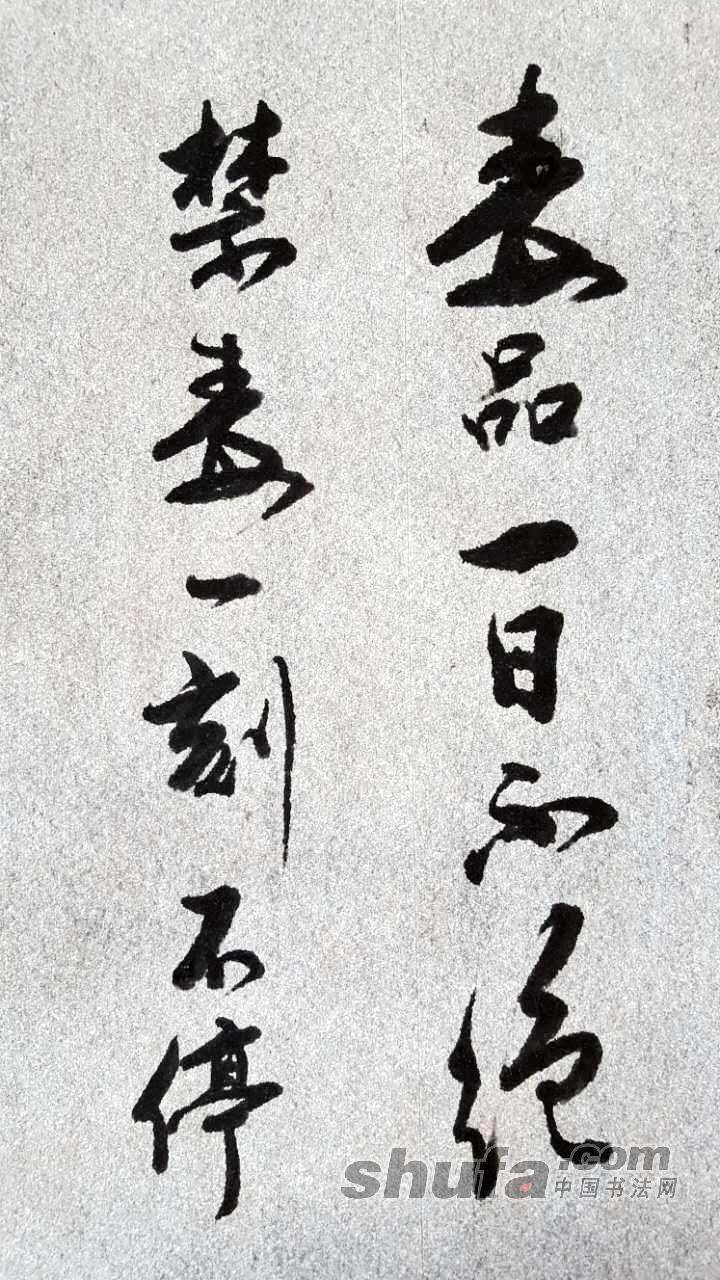 毒品一日不绝
禁毒一刻不停
shufa.com
中国书法网